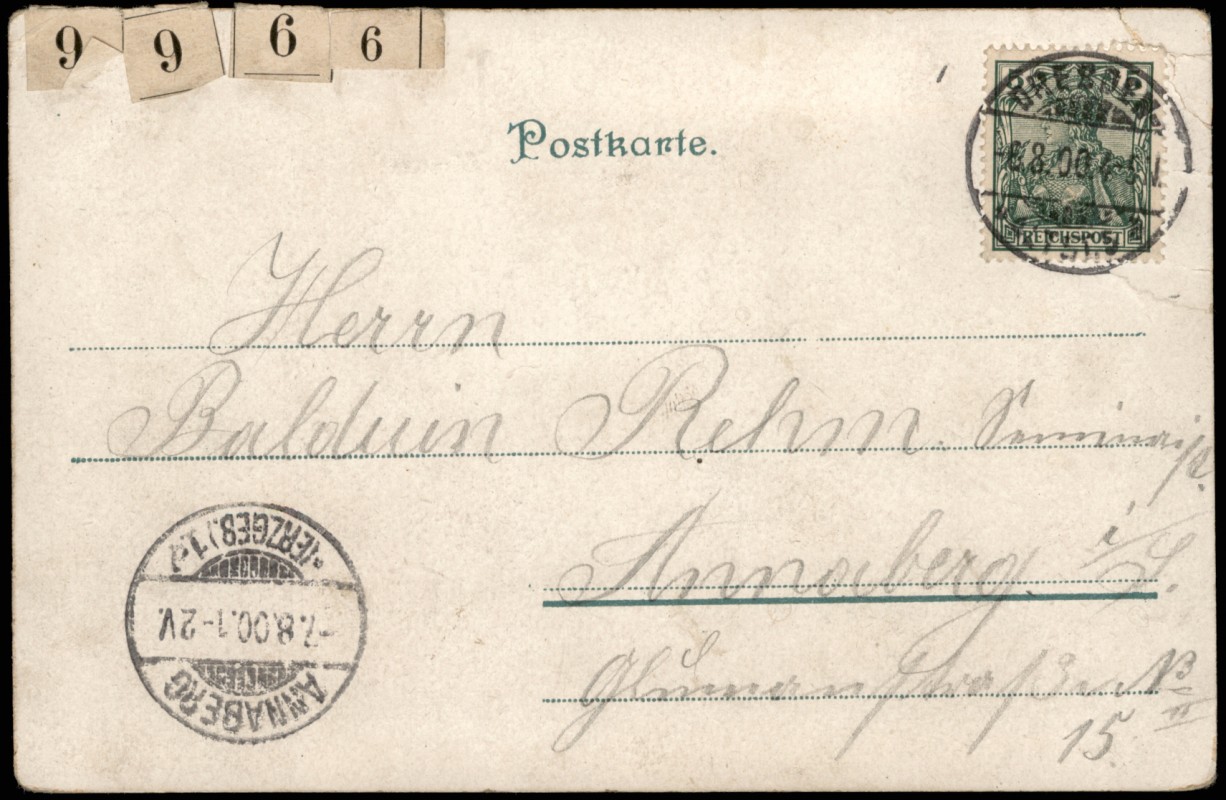 9 9 6 6
Postkarte.
5
DRESDEN
8.00.4-5 V.
REICHSPOST
Herrn
Balduin Rehm. Seminarist.
Annaberg. i/S.
15.
ANNABERG
-7.8.00.1-2V.
(ERZGEB.) 1.